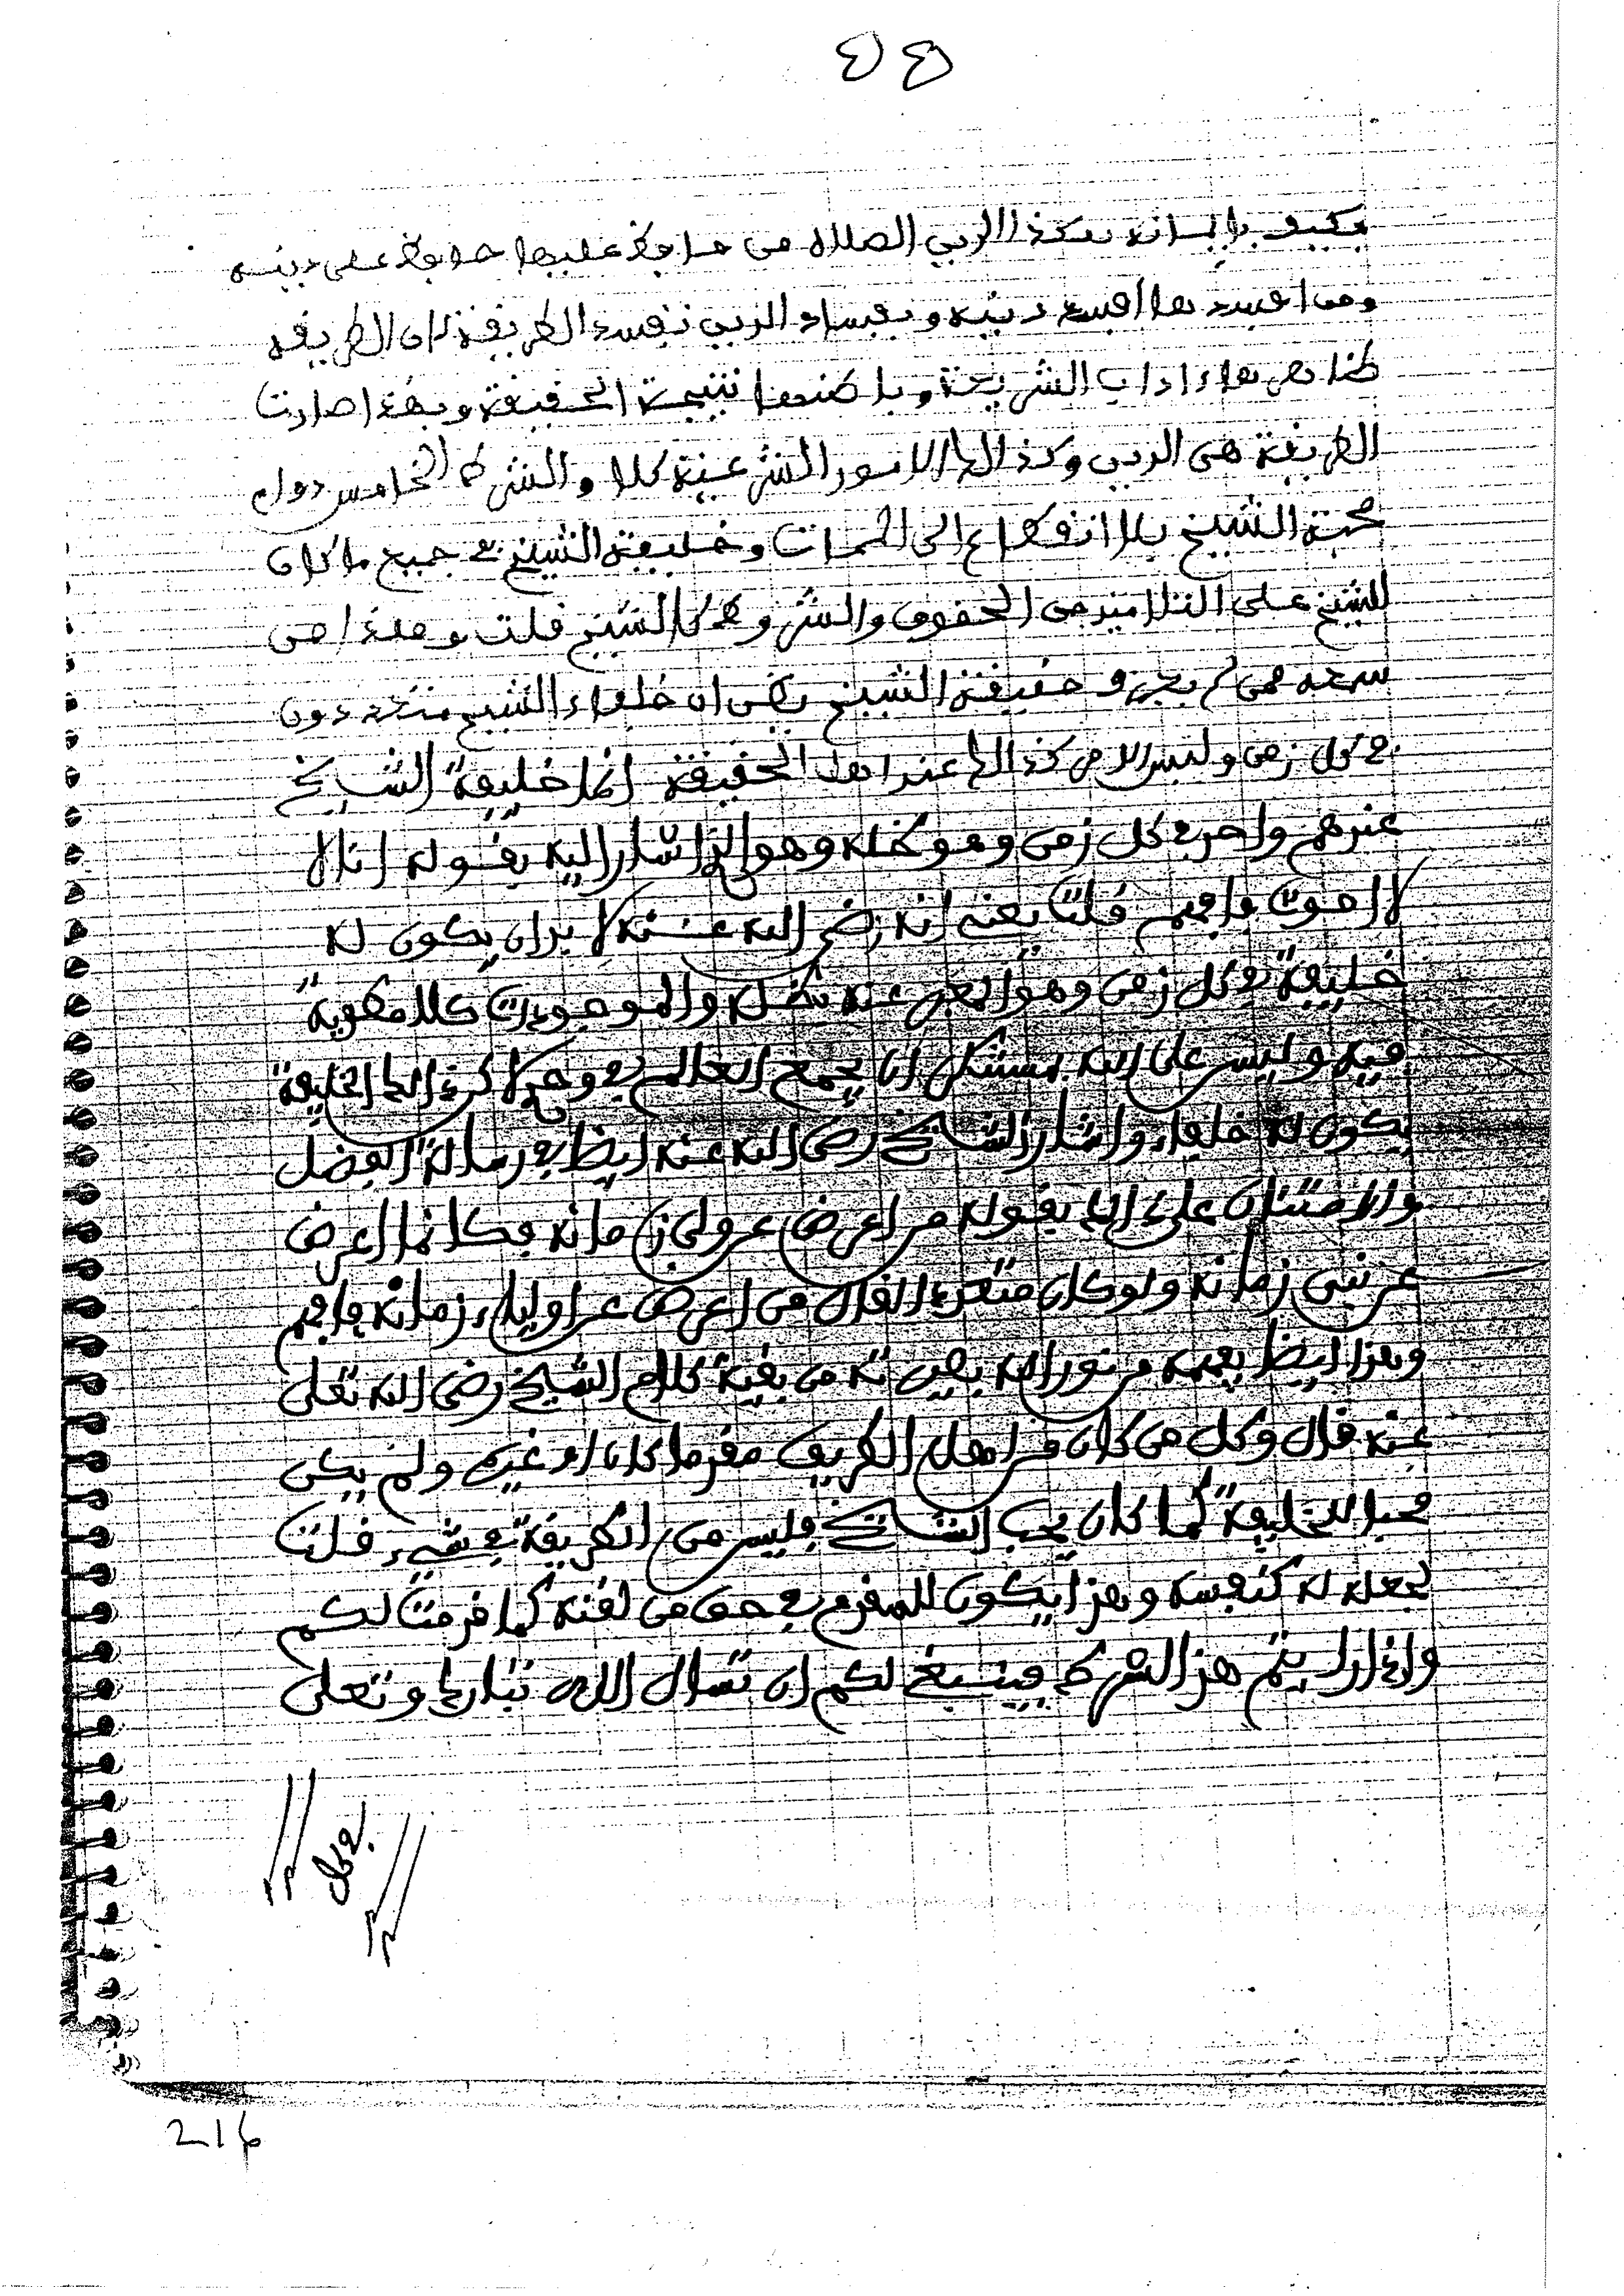 ٤٤
فكيف بإيمانه وكذا الدين الصلاة من حافظ عليها حافظ على دينه
ومن افسدها افسد دينه وبفساد الدين تفسد الطريقة لان الطريقه
ظاهرها ءاداب الشريعة وباطنها نتيجة الحقيقة وبهذا صارت
الطريقة هى الدين وكذالك الامور الشرعية كلا والشرط الخامس دوام
محبة الشيخ بلا انقطاع الى الممات وخليفة الشيخ في جميع ما كان
للشيخ على التلاميذ من الحقوق والشروط كالشيخ قلت وهذا من
فمن لم يعرف حقيقة الشيخ يظن ان خلفاء الشيخ متعددون
في كل زمن وليس الامر كذالك عند اهل الحقيقة انما خليفة الشيخ
عندهم واحد في كل زمن وهو ظله وهو الذى اشار اليه بقوله انا لا
لا اموت فافهم قلت يعنى انه رضي الله عنه لا بد ان يكون له
خليفة في كل زمن وهو المعبر عنه بظله والموجودات كلا مطوية
فيه وليس على الله بمستنكر ان يجمع العالم في واحد لاكن ذالك الخليفة
يكون له خلفاء واشار الشيخ رضي الله عنه ايظا في رسالة الفضل
والامتنان على ذالك بقوله من اعرض عن ولي زمانه فكانما اعرض
عن نبي زمانه ولو كان متعددا لقال من اعرض عن اولياء زمانه فافهم
وهذا ايظا يفهمه من نور الله بصيرته من بقية كلام الشيخ رضي الله تعلى
عنه قال وكل من كان من اهل الطريق مقدما كان او غيره ولم يكن
محبا للخليفة كما كان يحب الشيخ فليس من الطريقة في شيء قلت
لجعله له كنفسه وهذا يكون للمقدم في حق من لقنه كما قدمت لكم
واذا لم يتم هذا الشرط فينبغي لكم ان تسال الله تبارك وتعلى
في كل
216